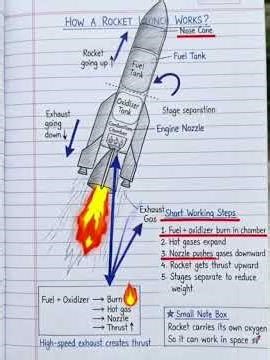 How a Rocket Launch Works?
Nose Cone
Rocket
going up ↑
Fuel Tank
Fuel
Tank
Oxidizer
Tank
Stage separation
Combustion
Chamber
Engine Nozzle
Exhaust
going
down ↓
Exhaust
Gas
Short Working Steps
1. Fuel + oxidizer burn in chamber
2. Hot gases expand
3. Nozzle pushes gases downward
4. Rocket gets thrust upward
5. Stages separate to reduce
weight.
Fuel + Oxidizer → Burn
→ Hot gas
→ Nozzle
→ Thrust ↑
High-speed exhaust creates thrust
★ Small Note Box
Rocket carries its own oxygen
So it can work in space